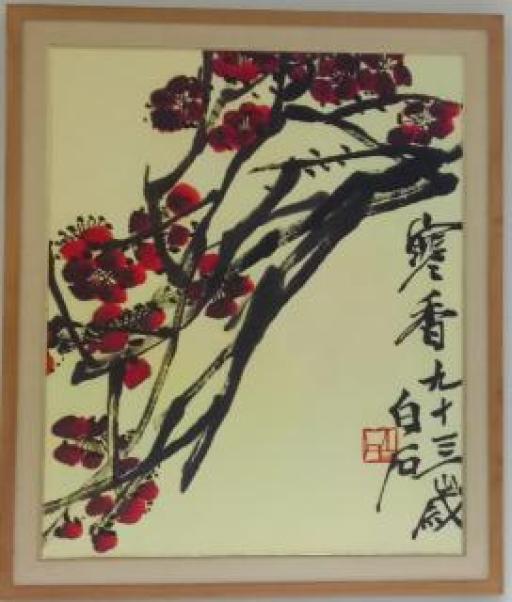 寒香九十三歲
白石